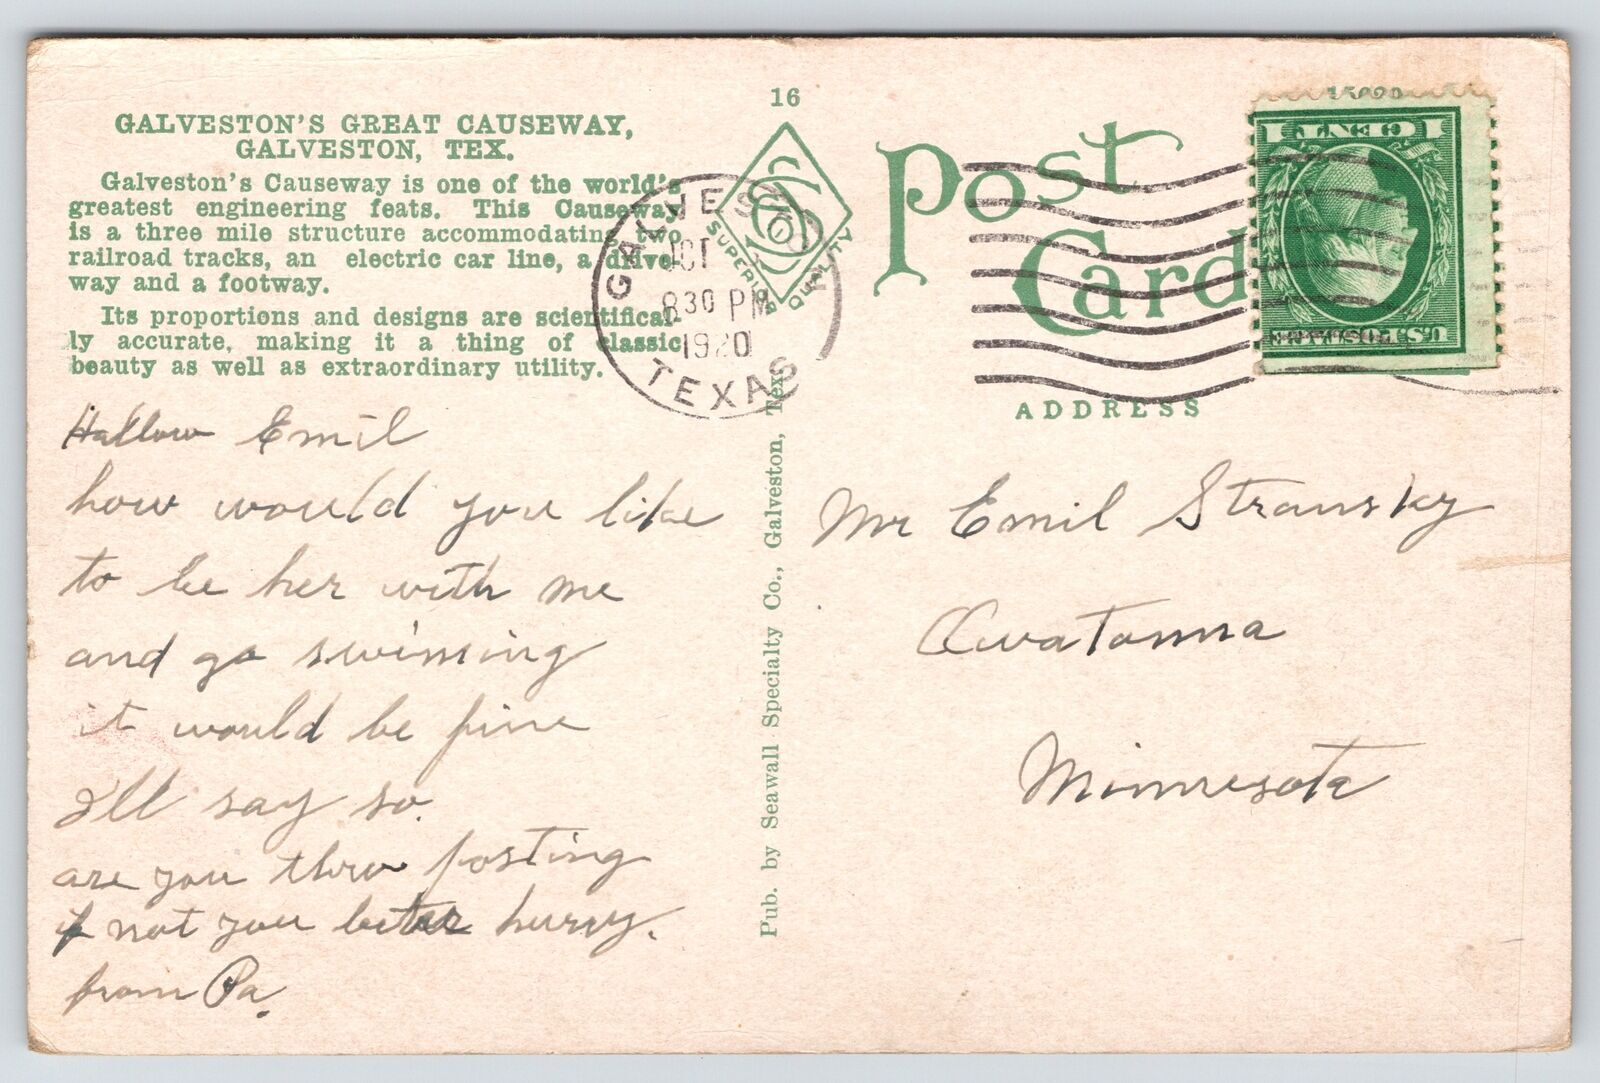 16
GALVESTON'S GREAT CAUSEWAY,
GALVESTON, TEX.
Galveston's Causeway is one of the world's
greatest engineering feats. This Causeway
is a three mile structure accommodating two
railroad tracks, an electric car line, a drive-
way and a footway.
Its proportions and designs are scientifical-
ly accurate, making it a thing of classic
beauty as well as extraordinary utility.
Hallow Emil
how would you like
to be her with me
and go swiming
it would be fine
I'll say so.
are you thru posting
if not you better hurry.
from Pa.
GALVESTON
OCT
830 PM
1920
TEXAS
SUPERIOR QUALITY
Pub. by Seawall Specialty Co., Galveston, Tex.
Post Card
1 CENT 1
U.S. POSTAGE
ADDRESS
Mr Emil Stransky
Owatonna
Minnesota